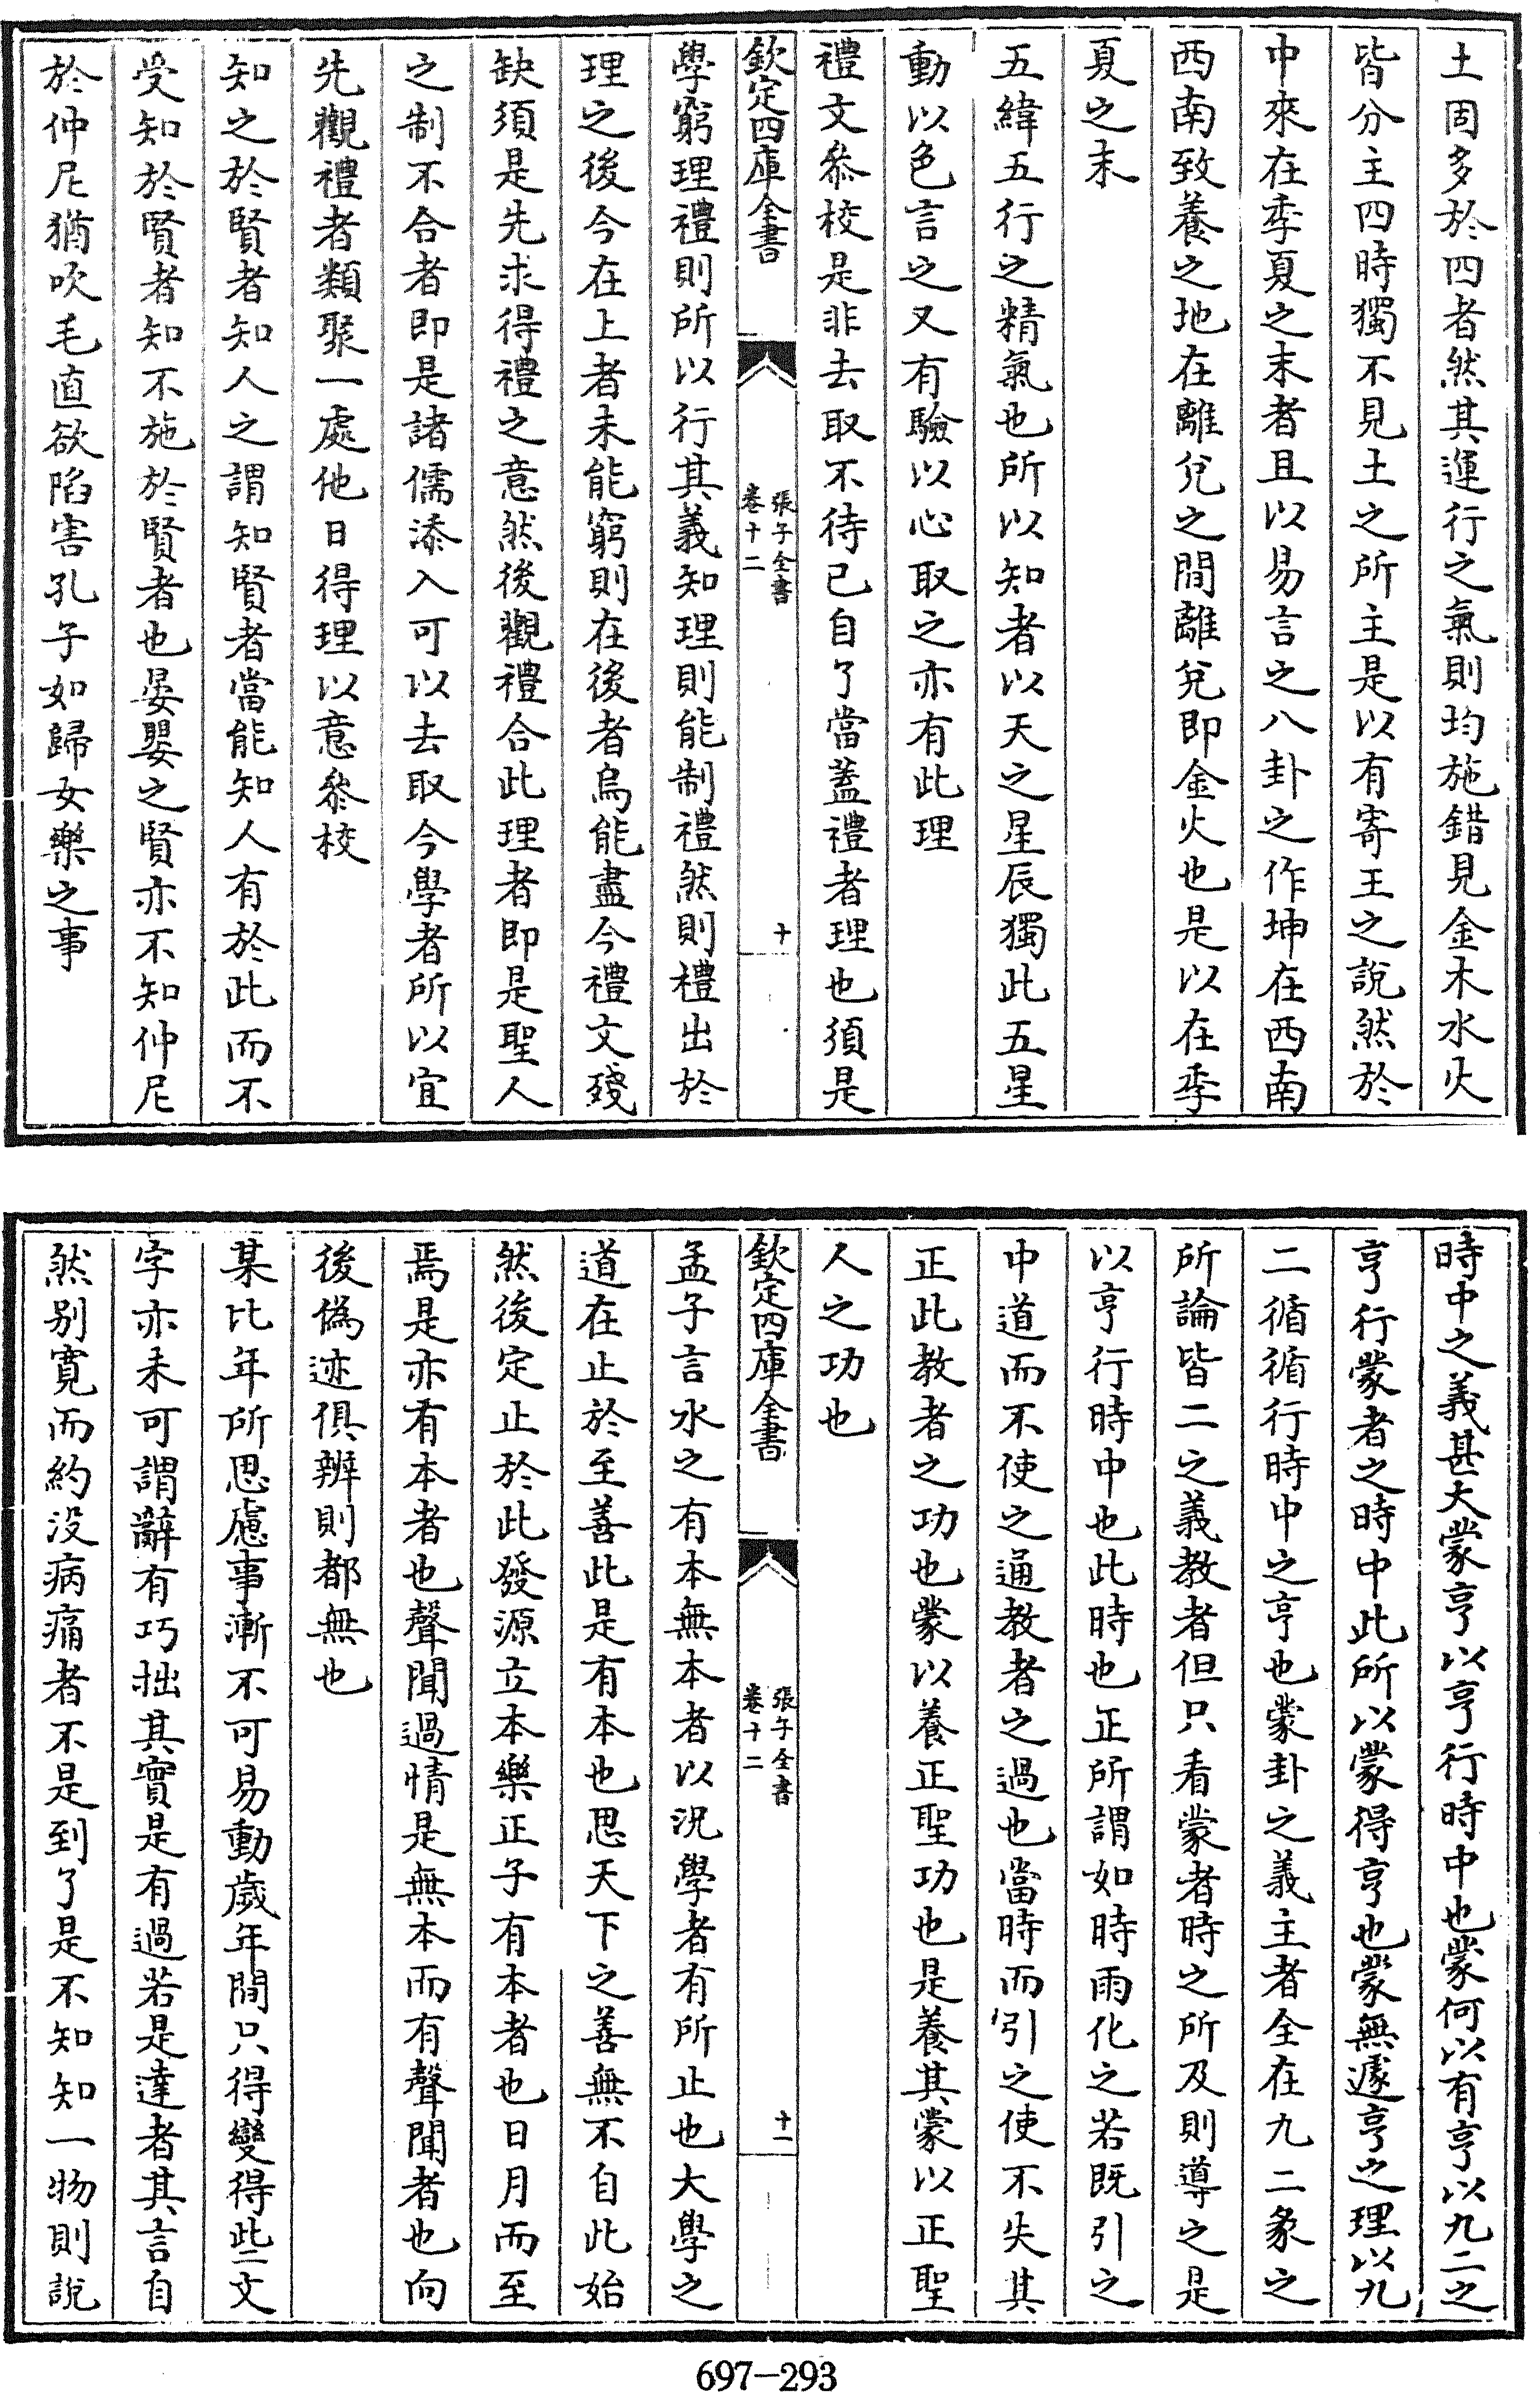 土固多於四者然其運行之氣則均施錯見金木水火
皆分主四時獨不見土之所主是以有寄王之說然於
中來在季夏之末者且以易言之八卦之作坤在西南
西南致養之地在離兌之間離兌即金火也是以在季
夏之末
五緯五行之精氣也所以知者以天之星辰獨此五星
動以色言之又有驗以心取之亦有此理
禮文叅校是非去取不待已自了當蓋禮者理也須是
欽定四庫全書
張子全書
卷十二
十
學窮理禮則所以行其義知理則能制禮然則禮出於
理之後今在上者未能窮則在後者烏能盡今禮文殘
缺須是先求得禮之意然後觀禮合此理者即是聖人
之制不合者即是諸儒添入可以去取今學者所以宜
先觀禮者類聚一處他日得理以意叅校
知之於賢者知人之謂知賢者當能知人有於此而不
受知於賢者知不施於賢者也晏嬰之賢亦不知仲尼
於仲尼猶吹毛直欲陷害孔子如歸女樂之事
時中之義甚大蒙亨以亨行時中也蒙何以有亨以九二之
亨行蒙者之時中此所以蒙得亨也蒙無遽亨之理以九
二循循行時中之亨也蒙卦之義主者全在九二彖之
所論皆二之義教者但只看蒙者時之所及則導之是
以亨行時中也此時也正所謂如時雨化之若既引之
中道而不使之通教者之過也當時而引之使不失其
正此教者之功也蒙以養正聖功也是養其蒙以正聖
人之功也
欽定四庫全書
張子全書
卷十二
十一
孟子言水之有本無本者以況學者有所止也大學之
道在止於至善此是有本也思天下之善無不自此始
然後定止於此發源立本樂正子有本者也日月而至
焉是亦有本者也聲聞過情是無本而有聲聞者也向
後偽迹俱辨則都無也
某比年所思慮事漸不可易動歲年間只得變得些文
字亦未可謂辭有巧拙其實是有過若是達者其言自
然别寛而約没病痛者不是到了是不知知一物則說
697-293